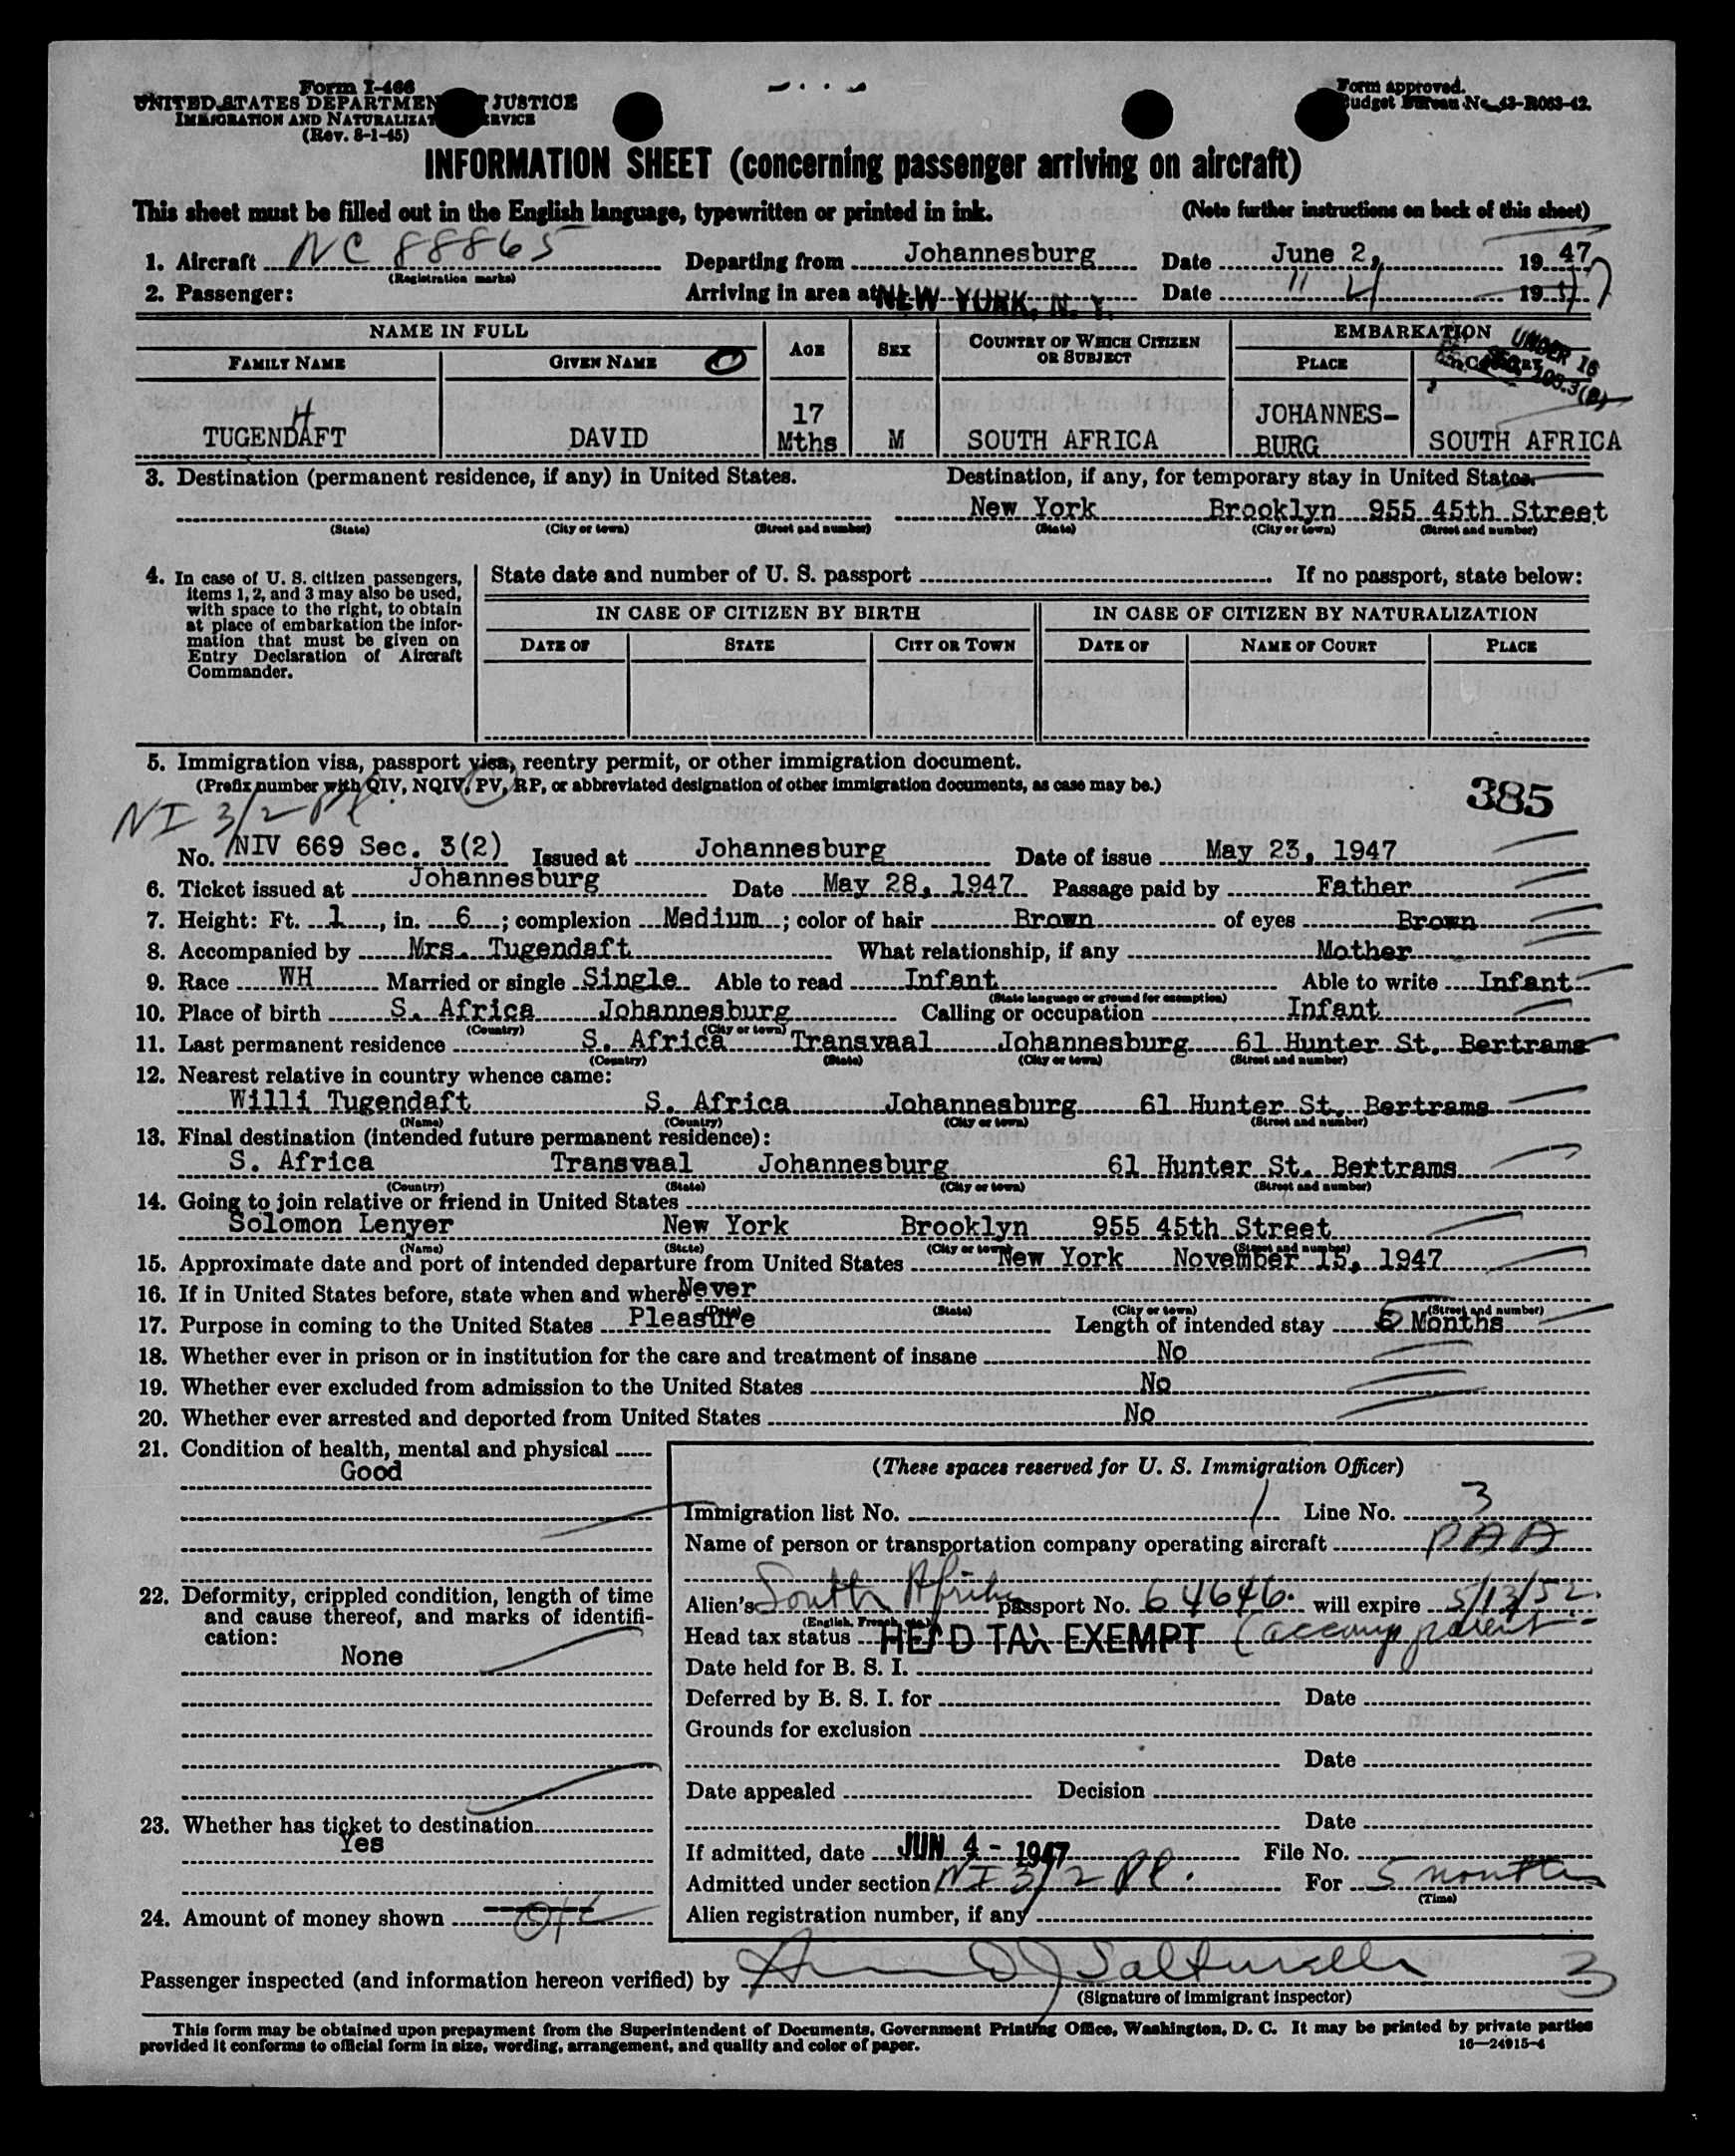 Form I-466
UNITED STATES DEPARTMENT OF JUSTICE
IMMIGRATION AND NATURALIZATION SERVICE
(Rev. 8-1-45)
Form approved.
Budget Bureau No. 43-R063-42.
INFORMATION SHEET (concerning passenger arriving on aircraft)
This sheet must be filled out in the English language, typewritten or printed in ink. (Note further instructions on back of this sheet)
1. Aircraft NC 88865 Departing from Johannesburg Date June 2, 1947
(Registration marks)
2. Passenger: Arriving in area at NEW YORK, N. Y. Date " 4 1947
NAME IN FULL AGE SEX COUNTRY OF WHICH CITIZEN OR SUBJECT EMBARKATION
FAMILY NAME GIVEN NAME PLACE COUNTRY
UNDER 16
TUGENDHAFT DAVID 17 Mths M SOUTH AFRICA JOHANNES-BURG SOUTH AFRICA
3. Destination (permanent residence, if any) in United States. Destination, if any, for temporary stay in United States.
New York Brooklyn 955 45th Street
(State) (City or town) (Street and number) (State) (City or town) (Street and number)
4. In case of U. S. citizen passengers, items 1, 2, and 3 may also be used, with space to the right, to obtain at place of embarkation the information that must be given on Entry Declaration of Aircraft Commander.
State date and number of U. S. passport If no passport, state below:
IN CASE OF CITIZEN BY BIRTH IN CASE OF CITIZEN BY NATURALIZATION
DATE OF STATE CITY OR TOWN DATE OF NAME OF COURT PLACE
5. Immigration visa, passport visa, reentry permit, or other immigration document.
(Prefix number with QIV, NQIV, PV, RP, or abbreviated designation of other immigration documents, as case may be.)
385
NI 3/2 Pl
No. NIV 669 Sec. 3(2) Issued at Johannesburg Date of issue May 23, 1947
6. Ticket issued at Johannesburg Date May 28, 1947 Passage paid by Father
7. Height: Ft. 1, in. 6; complexion Medium; color of hair Brown of eyes Brown
8. Accompanied by Mrs. Tugendaft What relationship, if any Mother
9. Race WH Married or single Single Able to read Infant Able to write Infant
(State language or ground for exemption)
10. Place of birth S. Africa Johannesburg Calling or occupation Infant
(Country) (City or town)
11. Last permanent residence S. Africa Transvaal Johannesburg 61 Hunter St. Bertrams
(Country) (State) (City or town) (Street and number)
12. Nearest relative in country whence came:
Willi Tugendaft S. Africa Johannesburg 61 Hunter St. Bertrams
(Name) (Country) (City or town) (Street and number)
13. Final destination (intended future permanent residence):
S. Africa Transvaal Johannesburg 61 Hunter St. Bertrams
(Country) (State) (City or town) (Street and number)
14. Going to join relative or friend in United States
Solomon Lenyer New York Brooklyn 955 45th Street
(Name) (State) (City or town) (Street and number)
15. Approximate date and port of intended departure from United States New York November 15, 1947
16. If in United States before, state when and where Never
(Date) (State) (City or town) (Street and number)
17. Purpose in coming to the United States Pleasure Length of intended stay Months
18. Whether ever in prison or in institution for the care and treatment of insane No
19. Whether ever excluded from admission to the United States No
20. Whether ever arrested and deported from United States No
21. Condition of health, mental and physical
Good
22. Deformity, crippled condition, length of time and cause thereof, and marks of identification:
None
23. Whether has ticket to destination
Yes
24. Amount of money shown
(These spaces reserved for U. S. Immigration Officer)
Immigration list No. 1 Line No. 3
Name of person or transportation company operating aircraft PAA
Alien's South African passport No. 64646. will expire 5/13/52.
(English, French, etc.)
Head tax status HEAD TAX EXEMPT (accomp parent
Date held for B. S. I.
Deferred by B. S. I. for Date
Grounds for exclusion
Date
Date appealed Decision
Date
If admitted, date JUN 4 - 1947 File No.
Admitted under section NI 3/2 Pl. For 5 months
(Time)
Alien registration number, if any
Passenger inspected (and information hereon verified) by
3
(Signature of immigrant inspector)
This form may be obtained upon prepayment from the Superintendent of Documents, Government Printing Office, Washington, D. C. It may be printed by private parties
provided it conforms to official form in size, wording, arrangement, and quality and color of paper.
16—24915-4